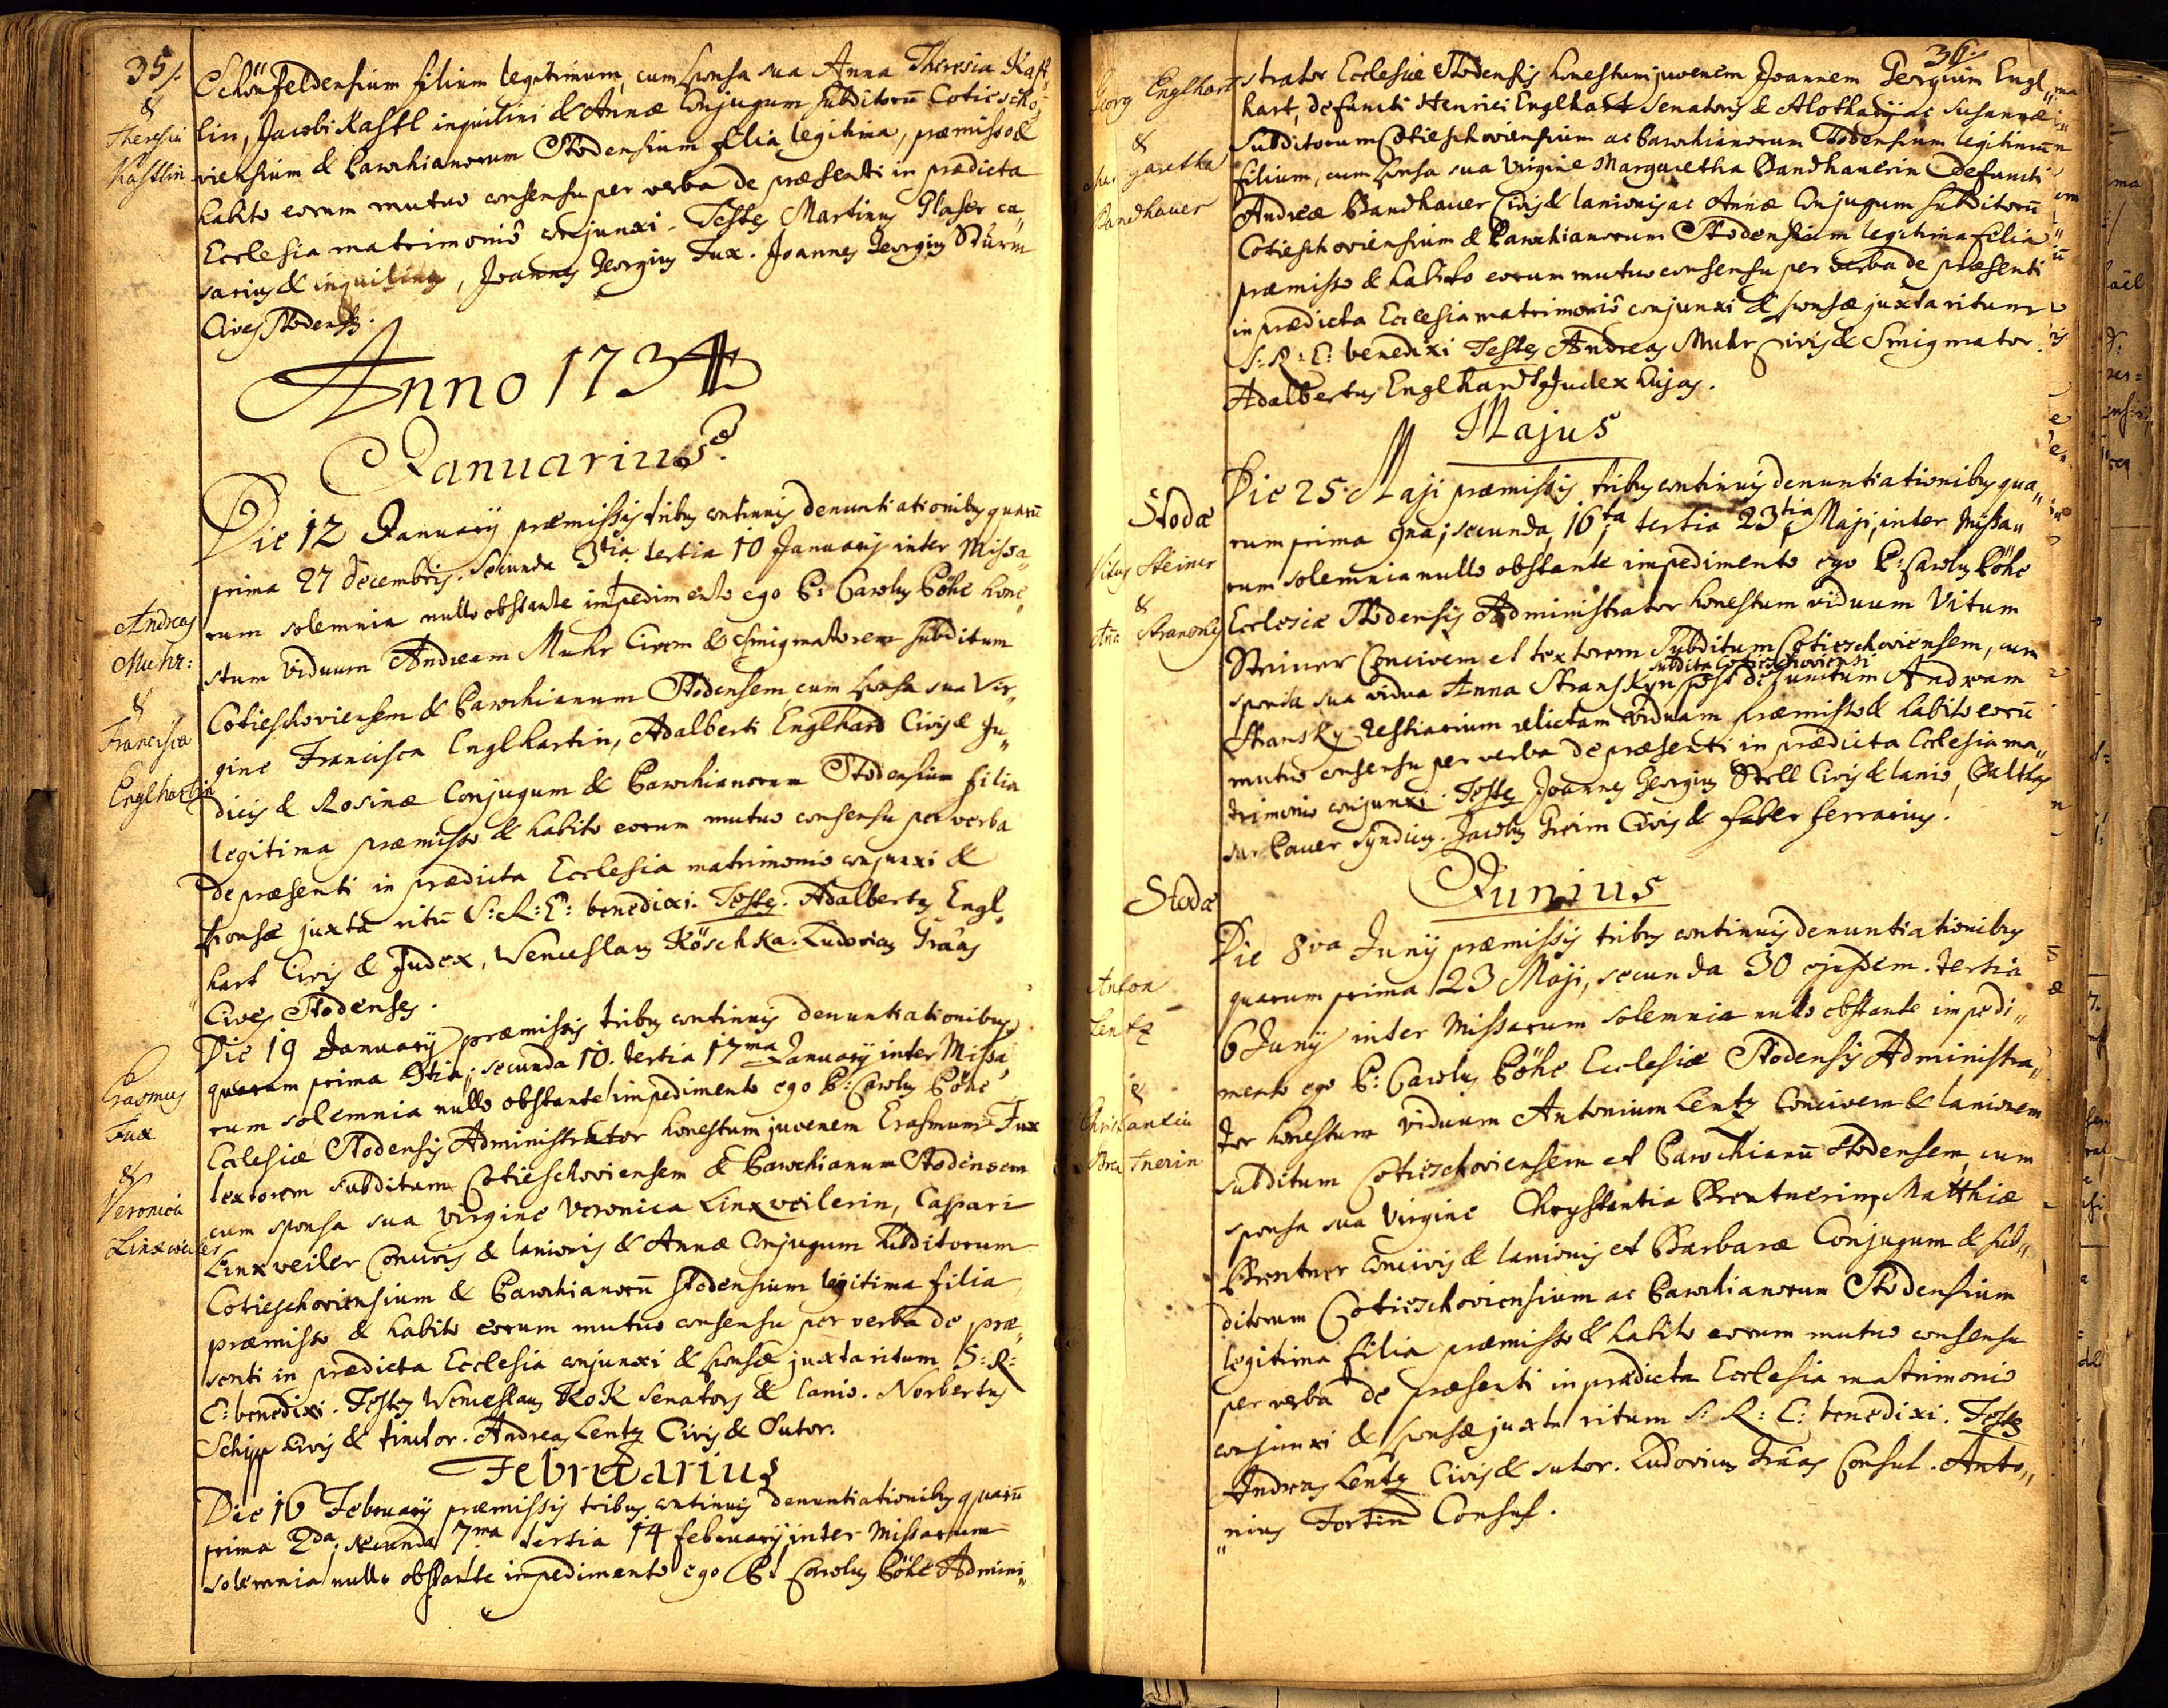 35/.
&
Theresia
Kastlin
Schönfeldensium filium legitimum, cum sponsa sua Anna Theresia Kast„
lin, Jacobi Kastl inquilini & Annæ Conjugum subditorū Cotiescho„
viensium & Parochianorum Stodensium filia legitima, præmisso &
habito eorum mutuo consensu per verba de præsenti in prædicta
Ecclesia matrimoniô conjunxi. Testes Martinus Glaser ca„
sarius & inquilinus, Joannes Georgius Fux. Joannes Georgius Stürm
Cives Stodenses.
Anno 1734
Januarius.
Andreas
Muhr:
&
Francisca
Englhartin
Die 12 Januarÿ præmissis tribus continuis denuntiationibus quarū
prima 27 decembris. secunda 3tia. tertia 10 Januarÿ inter Missa„
rum solemnia nullo obstante impedimento ego P: Carolus Pöhe hone„
stum viduum Andream Muhr Civem & Smigmatorem subditum
Cotieschoviensem & Parochianum Stodensem, cum sponsa sua Vir„
gine Francisca Englhartin, Adalberti Englhard Civis & Ju„
dicis & Rosinæ Conjugum & Parochianorum Stodensium filia
legitima præmisso & habito eorum mutuo consensu per verba
de præsenti in prædicta Ecclesia matrimonio conjunxi &
sponsæ juxta ritū S: R: E: benedixi. Testes. Adalbertus Engl„
hart Civis & Judex, Wenceslaus Köschka. Ludovicus Gräas
Cives Stodenses.
Erasmus
Fux
&
Veronica
Linxweiler
Die 19 Januarÿ præmissis tribus continuis denuntiationibus
quarum prima 3tia; secunda 10. tertia 17ma Januarÿ inter Missa„
rum solemnia nullo obstante impedimento ego P: Carolus Pöhe
Ecclesiæ Stodensis Administrator honestum juvenem Erasmum Fux
textorem subditum Cotieschoviensem & Parochianum Stodensem
cum sponsa sua virgine Veronica Linxweilerin, Caspari
Linxweiler Concivis & lanionis & Annæ Conjugum subditorum
Cotieschoviensium & Parochianorū Stodensium legitima filia
præmisso & habito eorum mutuo consensu per verba de præ„
senti in prædicta Ecclesia conjunxi & sponsæ juxta ritum S: R:
E: benedixi. Testes Wenceslaus Kok Senatorj & lanio. Norbertus
Schipp Civis & tinctor. Andreas Lentz Civis & Sutor.
Februarius
Die 16 Februarÿ præmissis tribus continuis denuntiationibus quarū
prima 2da, secunda 7ma tertia 14 februarÿ inter Missarum
solemnia nullo obstante impedimento ego P: Carolus Pöhe Admini„
36/.
Georg Englhart
&
Margaretha
Bandhauer
strator Ecclesiæ Stodensis honestum juvenem Joannem Georgium Engl„
hart, defuncti Henrici Englhart Senatoris & Alothaÿ ac Susannæ
subditorum Cotieschoviensium ac Parochianorum Stodensium legitimum
filium, cum sponsa sua virgine Margaretha Bandhauerin Defuncti
Andreæ Bandhauer Civis & lanionis ac Annæ Conjugum subditorū
Cotieschoviensium & Parochianorum Stodensium legitima filia
præmisso & habito eorum mutuo consensu per verba de præsenti
in prædicta Ecclesia matrimoniô conjunxi & sponsæ juxta ritum
S: R: E: benedixi Testes Andreas Muhr Civis & Smigmator.
Adalbertus Englhardt Judex hujas.
Majus
Stodæ
Vitus Steiner
&
Ana Stransky
Die 25. Maji præmissis tribus continuis denuntiationibus qua„
rum prima 9na; secunda 16ta, tertia 23tia Maji, inter Missa„
rum solemnia nullo obstante impedimento ego P: Carolus Pöhe
Ecclesiæ Stodensis Administrator honestum viduum Vitum
Steiner Concivem et textorem subditum Cotieschoviensem, cum
subdita Cotieschoviensi
sponsa sua vidua Anna Stranskyn post defunctum Andream
Stransky Restiarium relictam viduam præmisso & habito eorū
mutuo consensu per verba de præsenti in prædicta Ecclesia ma„
trimonio conjunxi. Testes Joannes Georgius Stell Civis & lanio, Baltha„
sar Bauer Syndicus. Jacobus Greim Civis & faber ferrarius.
Junius
Stodæ
Anton
Lentz
&
Christantia
Brentnerin
Die 8va Junÿ præmissis tribus continuis denuntiationibus
quarum prima 23 Maji, secunda 30 ejusdem. tertia
6 Junÿ inter Missarum solemnia nullo obstante impedi„
mento ego P: Carolus Pöhe Ecclesiæ Stodensis Administra„
tor honestum viduum Antonium Lentz Concivem & lanionem
subditum Cotieschoviensem et Parochianū Stodensem, cum
sponsa sua Virgine Chrystantia Brentnerin, Matthiæ
Brentner Concivis & lanionis et Barbaræ Conjugum & sub„
ditorum Cotieschoviensium ac Parochianorum Stodensium
legitima filia præmisso & habito eorum mutuo consensu
per verba de præsenti in prædicta Ecclesia matrimonio
conjunxi & sponsæ juxta ritum S: R: E: benedixi. Testes
Andreas Lentz Civis & sutor. Ludovicus Gräas Consul. Anto„
„nius Fortin Consul.